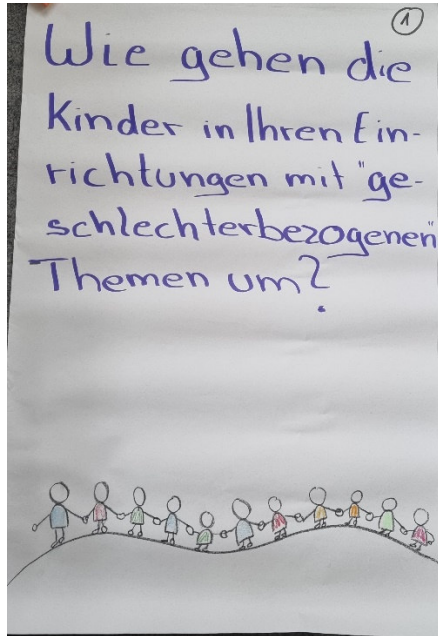 1
Wie gehen die
Kinder in Ihren Ein-
richtungen mit "ge-
schlechterbezogenen"
Themen um?